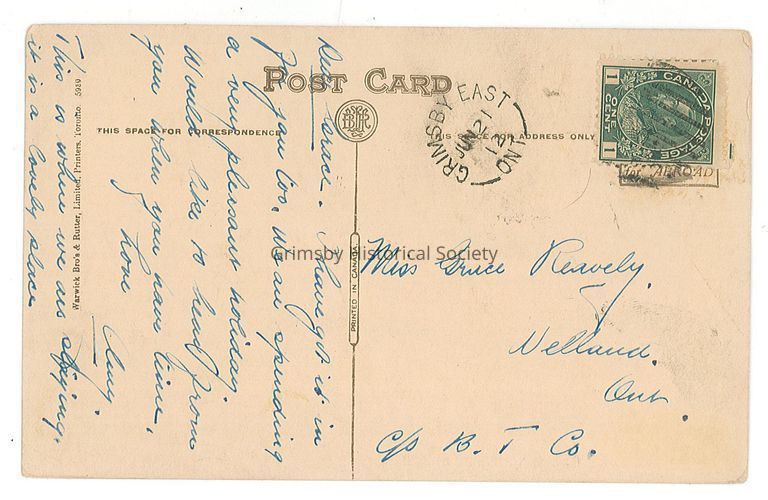 POST CARD
THIS SPACE FOR CORRESPONDENCE
THIS SPACE FOR ADDRESS ONLY
GRIMSBY EAST
JUN 21
13
ONT
CANADA POSTAGE
1 ONE CENT 1
for ABROAD
Dear Grace. I have got it in
for you too. We are spending
a very pleasant holiday.
Would like to hear from
you when you have time.
Love
Amy
This is where we are staying.
it is a lovely place
Warwick Bro's & Rutter, Limited, Printers, Toronto. 5939
PRINTED IN CANADA
Grimsby Historical Society
Miss Grace Reavely.
Welland.
Ont.
c/o B. T Co.